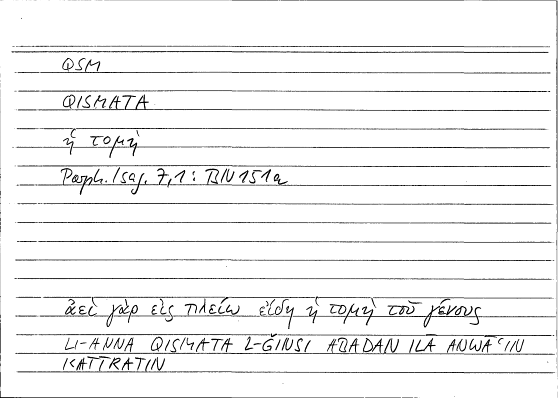 QSM
QISMATA
ἡ τομή
Porph. Isag. 7,1: BN 151a
ἀεὶ γὰρ εἰς πλείω εἴδη ἡ τομὴ τοῦ γένους
LI-ANNA QISMATA L-ǦINSI ABADAN ILĀ ANWĀʿIN
KAṮĪRATIN